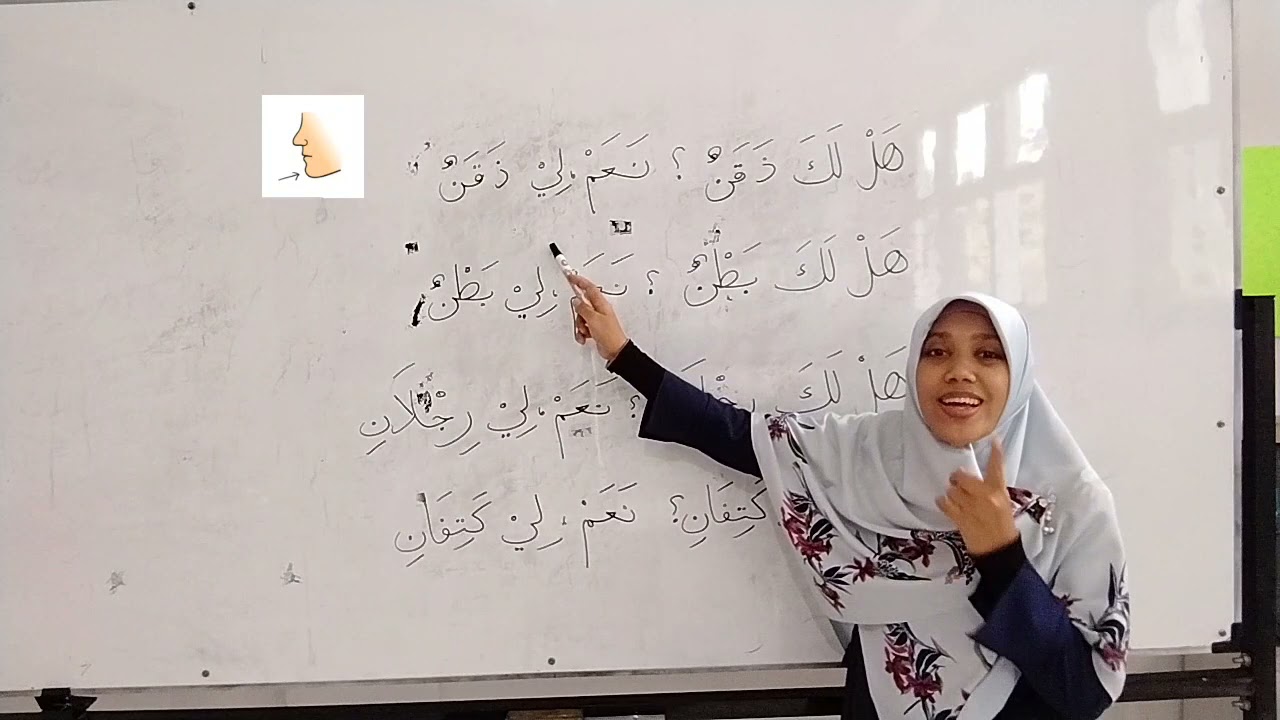 هَلْ لَكَ ذَقَنٌ ؟ نَعَمْ، لِيْ ذَقَنٌ
هَلْ لَكَ بَطْنٌ ؟ نَعَمْ، لِيْ بَطْنٌ
هَلْ لَكَ ؟ نَعَمْ، لِيْ رِجْلَانِ
كَتِفَانِ؟ نَعَمْ، لِيْ كَتِفَانِ